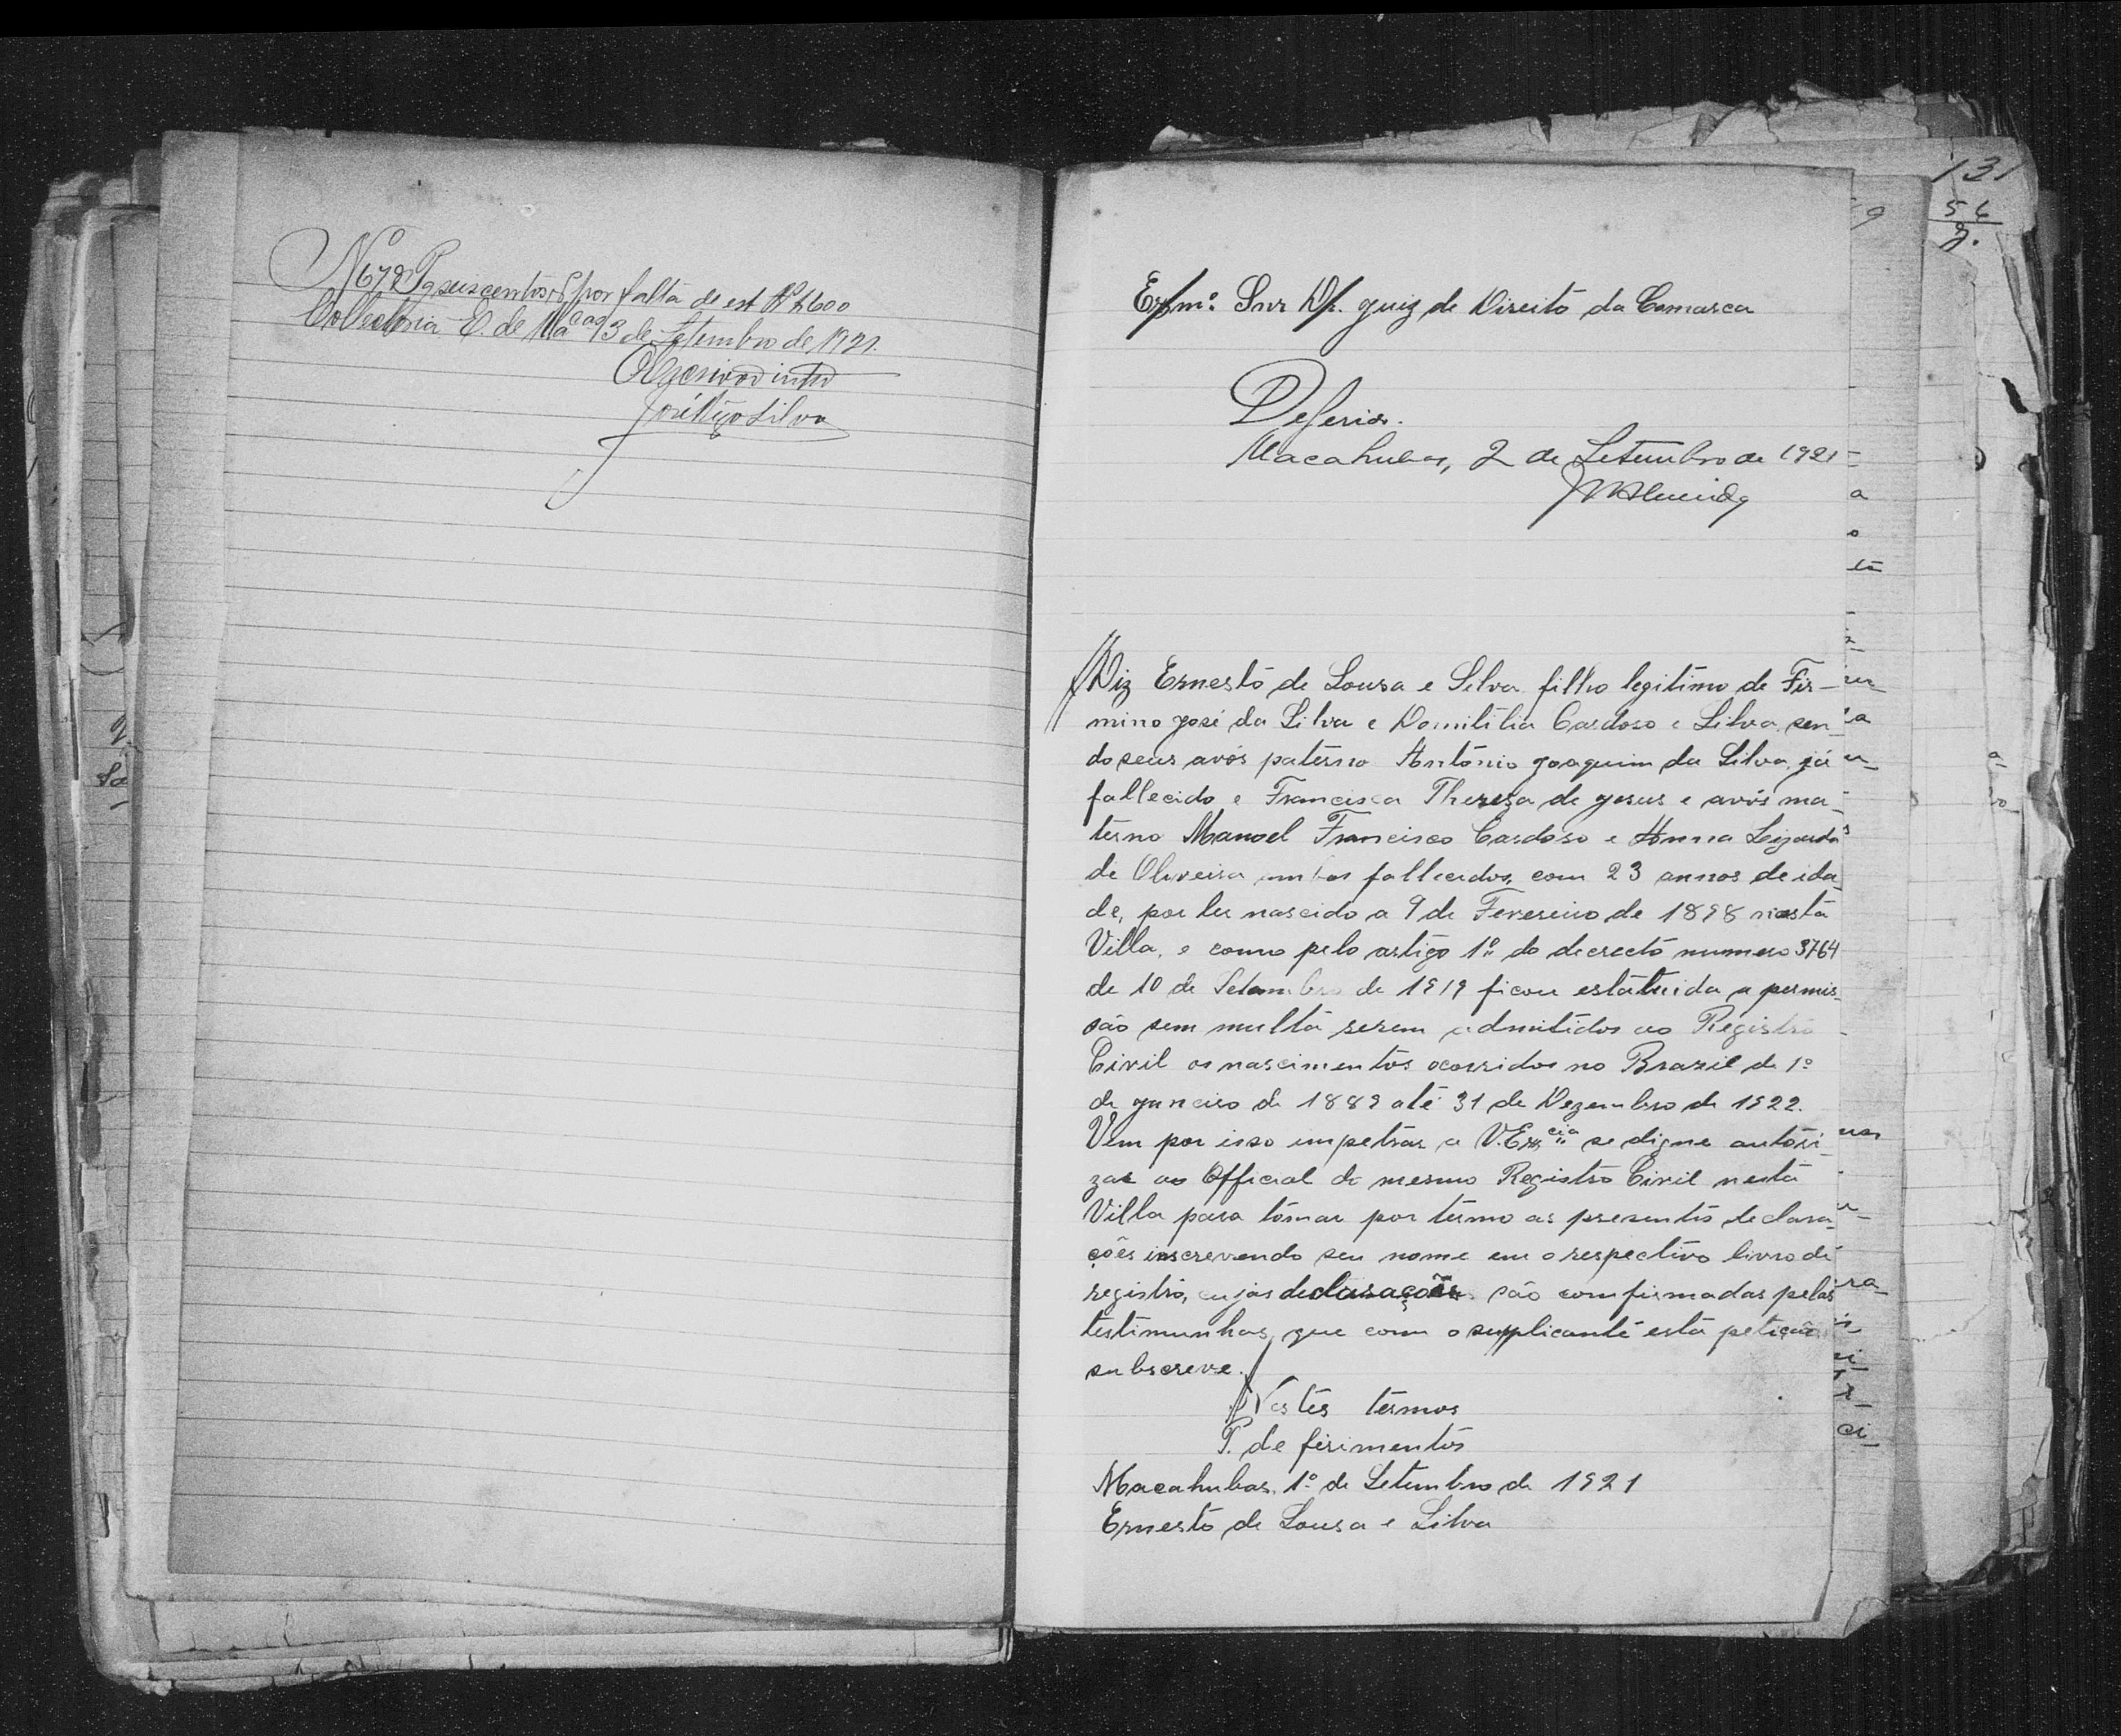 Nº 678 Pg seiscentos rs por falta de est Rs $600
Collectoria E. de Macas 3 de Setembro de 1921.
O Escrivão intº
José Silva
131
Exmº Snr Dr. Juiz de Direito da Comarca
Deferido.
Macahubas, 2 de Setembro de 1921
Almeida
Diz Ernesto de Sousa e Silva filho legitimo de Fir-
mino José da Silva e Domitilia Cardoso e Silva, sen-
do seus avós paterno Antonio Joaquim da Silva, já
fallecido e Francisca Thereza de Jesus e avós ma-
terno Manoel Francisco Cardoso e Anna
de Oliveira ambos fallecidos, com 23 annos de ida-
de, por ter nascido a 9 de Fevereiro de 1898 nesta
Villa, e como pelo artigo 1º do decreto numero 3764
de 10 de Setembro de 1919 ficou estatuida a permis-
são sem multa serem admitidos ao Registro
Civil os nascimentos ocorridos no Brazil de 1º
de Janeiro de 1889 até 31 de Dezembro de 1922.
Vem por isso impetrar a V. Excia se digne autori-
zar ao Official do mesmo Registro Civil nesta
Villa para tomar por termo as presentes declara-
ções inscrevendo seu nome em o respectivo livro de
registro, cujas declarações são comfirmadas pelas
testimunhas que com o supplicante esta petição
subscreve.
Nestes termos
P. deferimentos
Macahubas, 1º de Setembro de 1921
Ernesto de Sousa e Silva